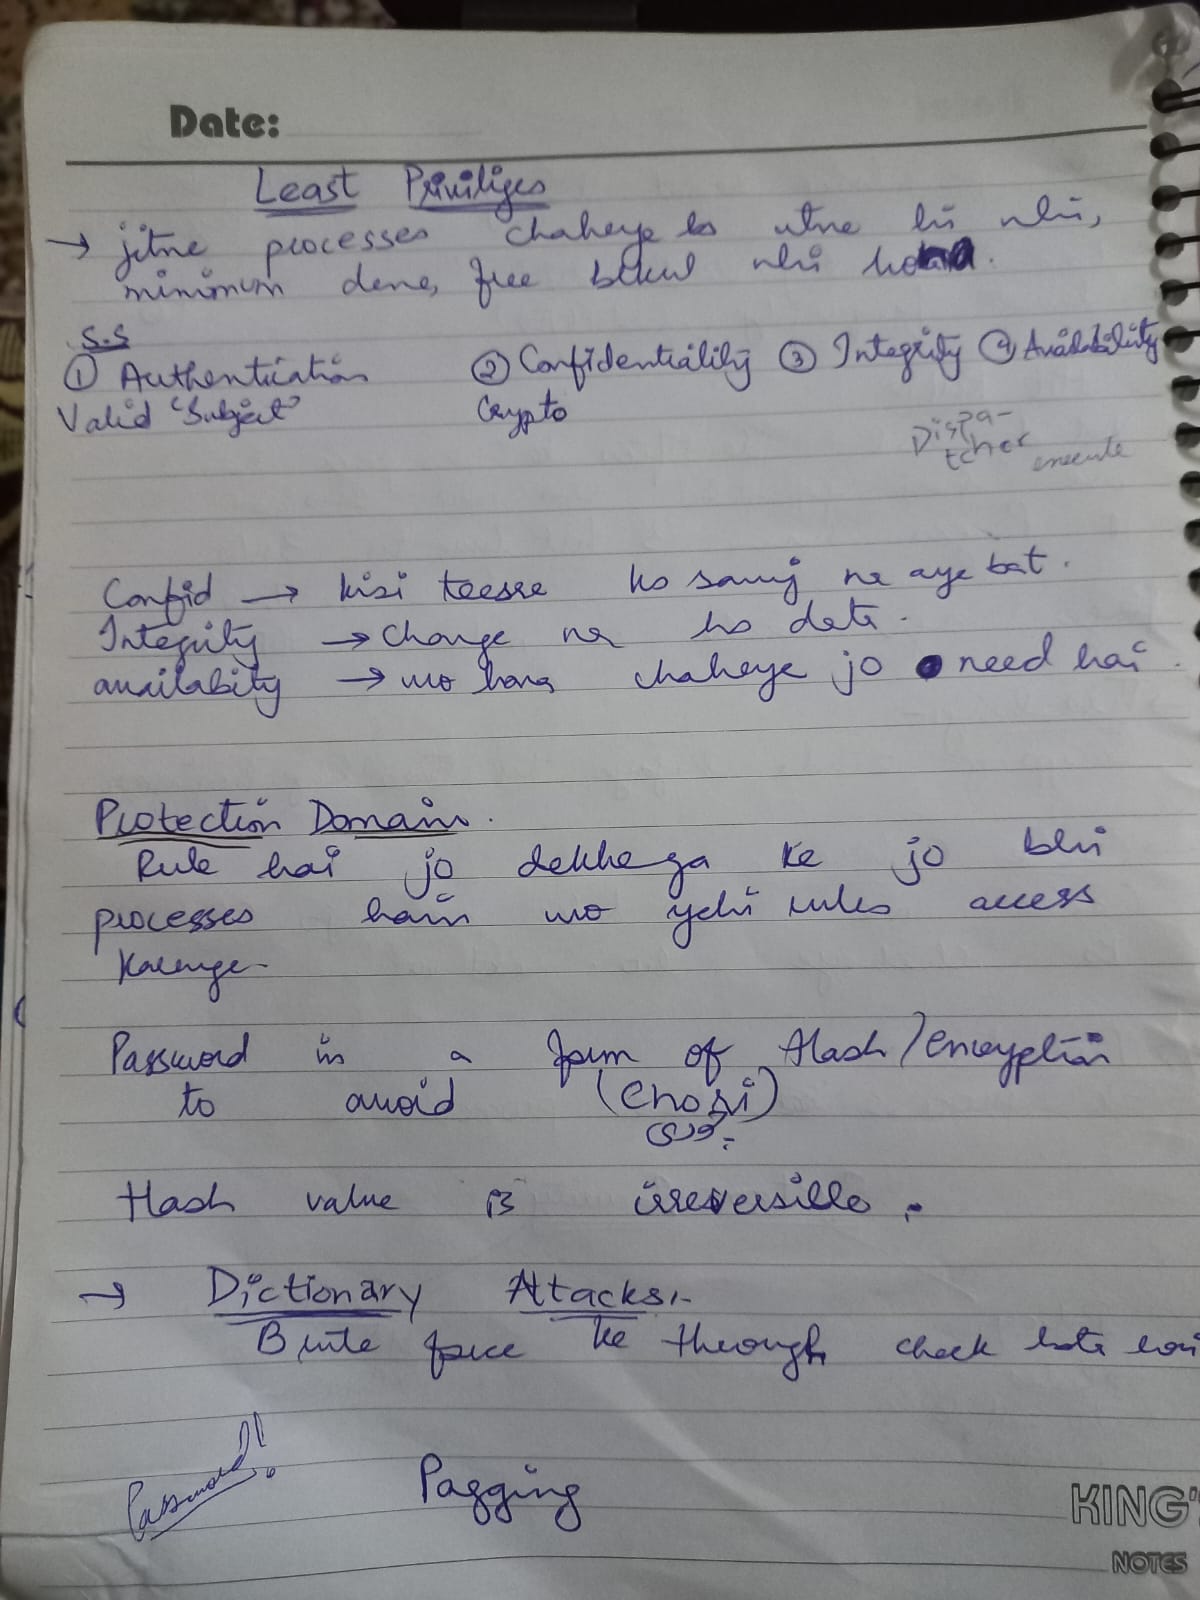 Date:
Least Priviliges
→ jitne processes chaheye ho utne hi nhi,
minimum dene, free bilkul nhi hona.
S.S
① Authentication ② Confidentiality ③ Integrity ④ Availability
Valid "Subject" Crypto
Dispa-
tcher execute
Confid → kisi teesre ko samj na aye bat.
Integrity → change na ho data.
availabity → wo hona chaheye jo need hai.
Protection Domain.
Rule hai jo dekhega ke jo bhi
processes hain wo yehi rules access
karenge-
Password in a form of Hash/encryption
to avoid (Chori)
چوری
Hash value is irreversible.
→ Dictionary Attacks:-
Brute force ke through check hota hai
Password!!
Pagging
KING'
NOTES